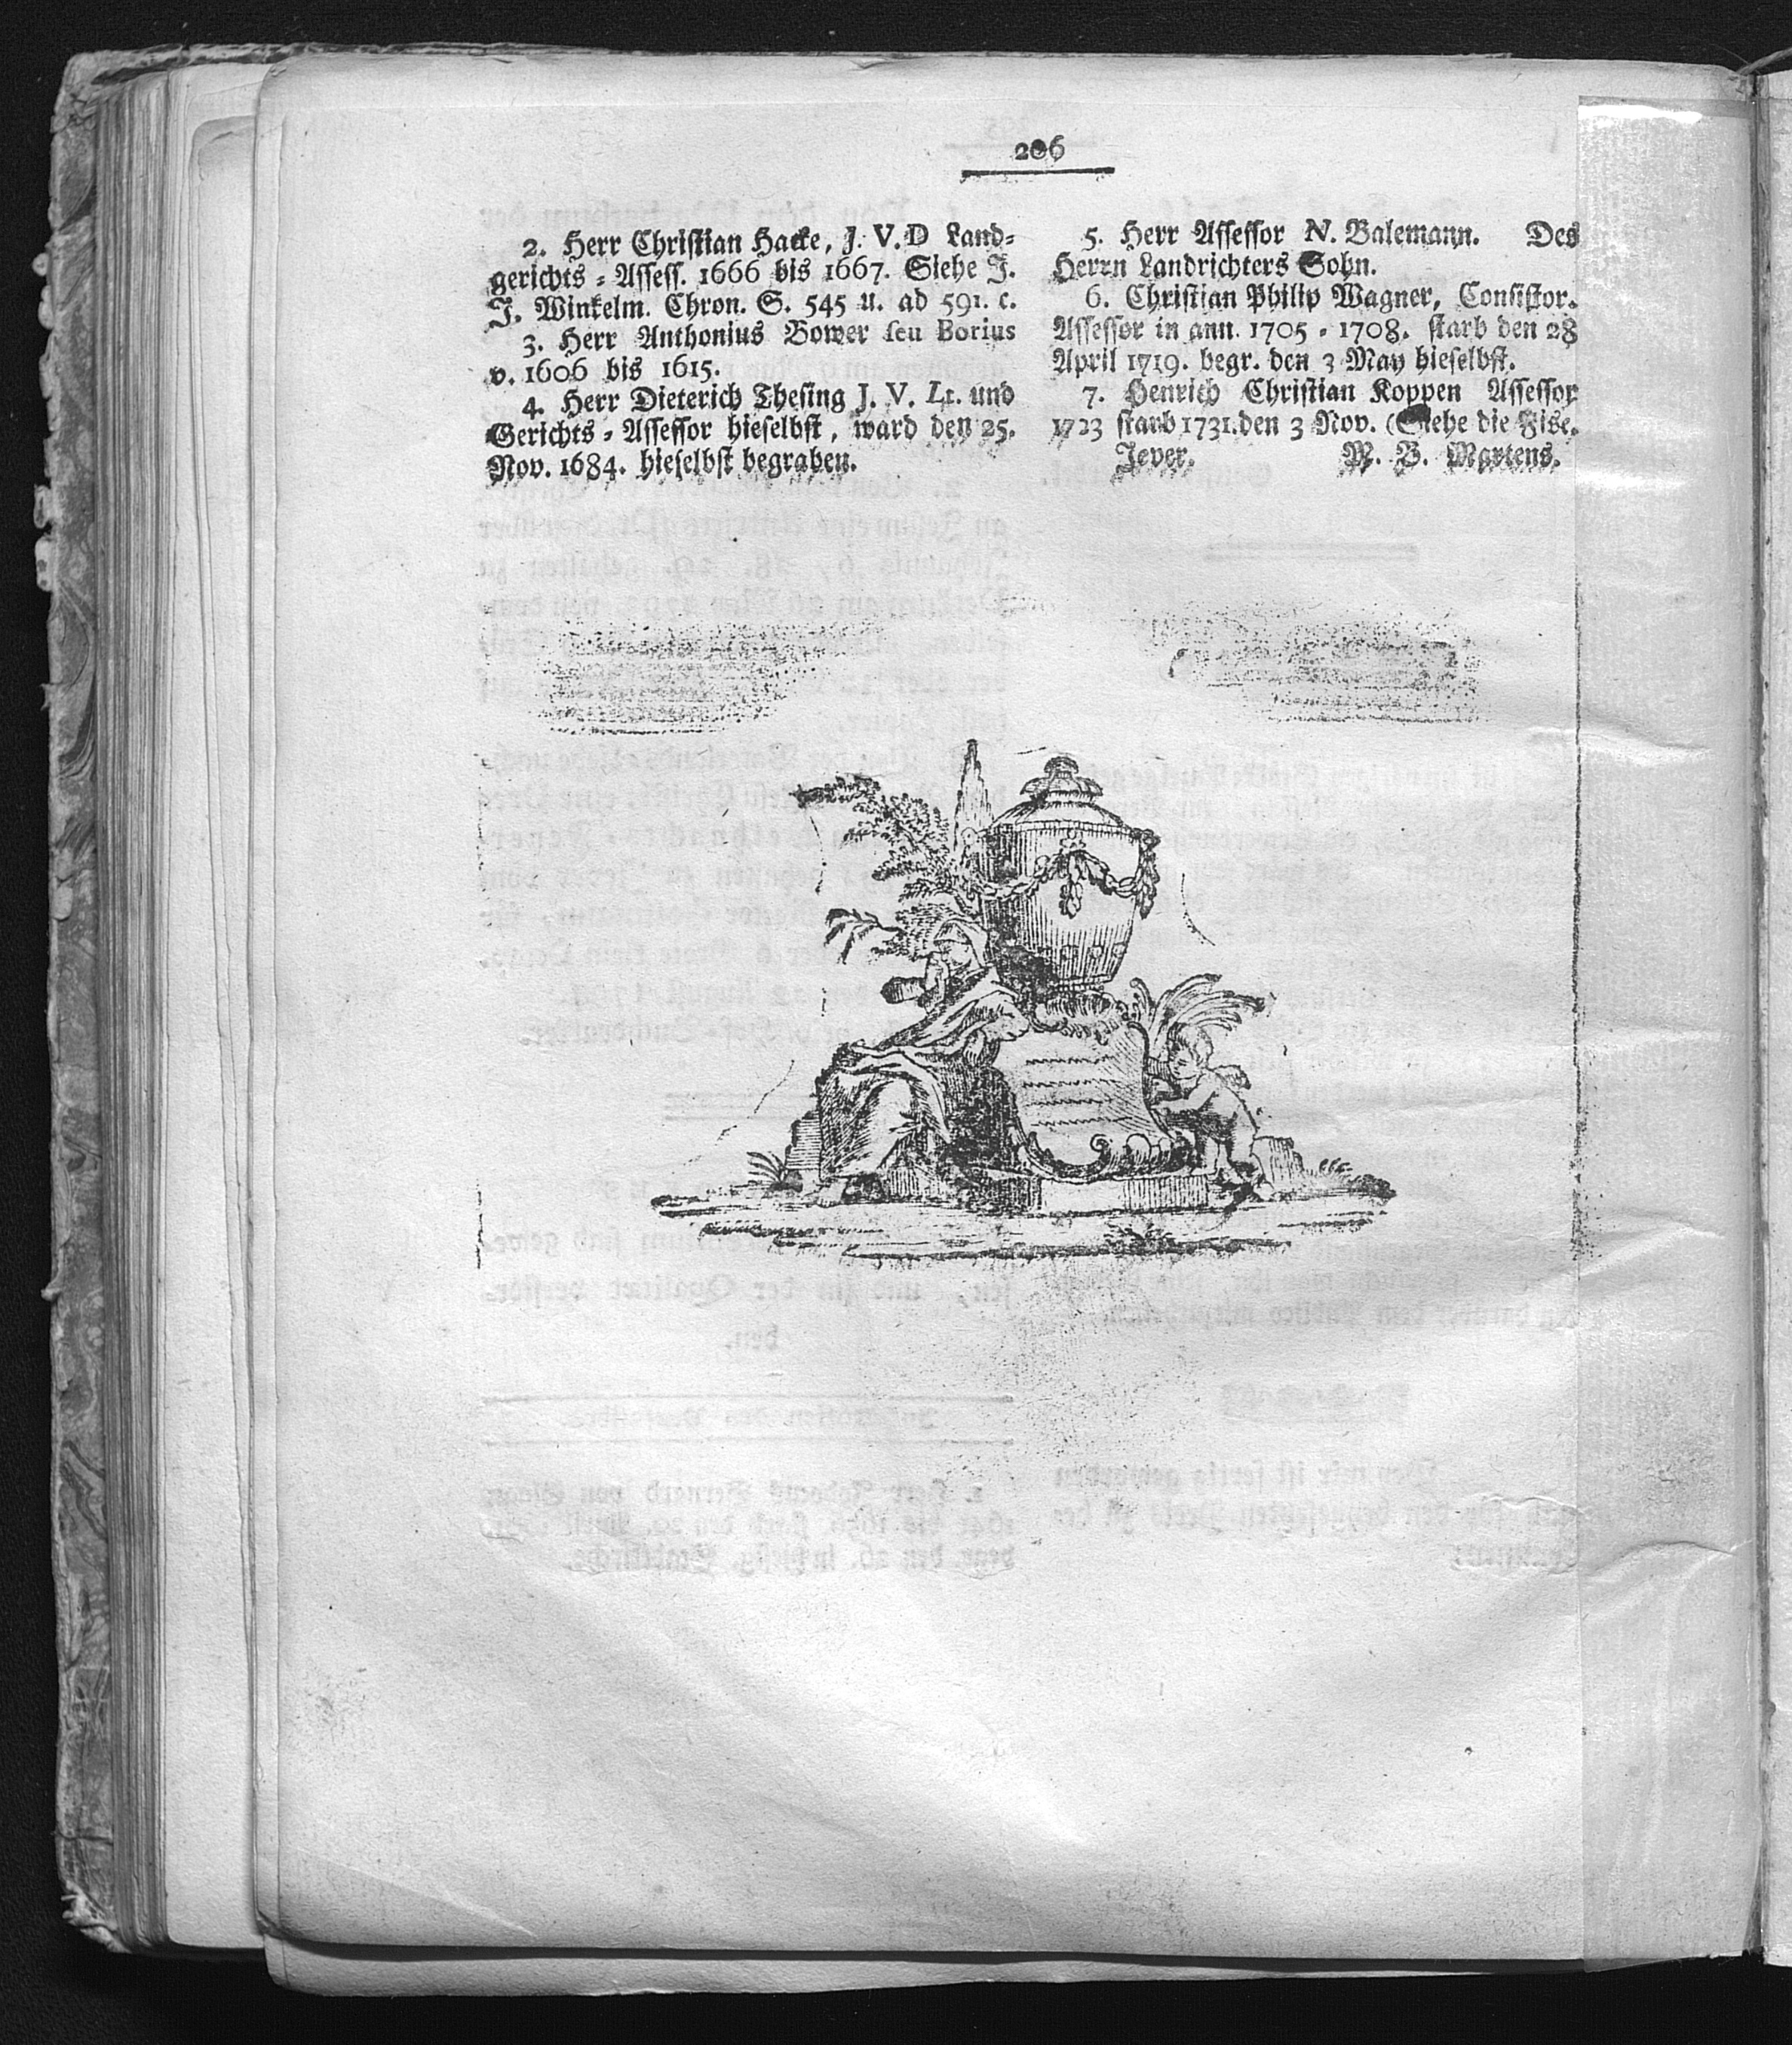 206
2. Herr Christian Hacke, J. V. D Land-
gerichts-Assess. 1666 bis 1667. Siehe J.
J. Winkelm. Chron. S. 545 u. ad 591. c.
3. Herr Anthonius Bower seu Borius
v. 1606 bis 1615.
4. Herr Dieterich Thesing J. V. Lt. und
Gerichts-Assessor hieselbst, ward den 25.
Nov. 1684. hieselbst begraben.
5. Herr Assessor N. Balemann. Des
Herrn Landrichters Sohn.
6. Christian Philip Wagner, Consistor.
Assessor in ann. 1705-1708. starb den 28
April 1719. begr. den 3 May hieselbst.
7. Henrich Christian Koppen Assessor
1723 starb 1731. den 3 Nov. (Siehe die Fise.
Jever. M. B. Martens.